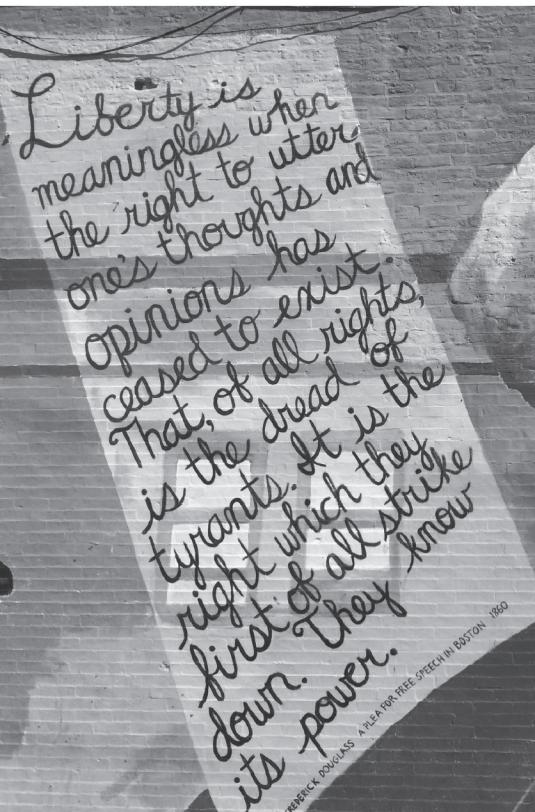 Liberty is
meaningless when
the right to utter
one's thoughts and
opinions has
ceased to exist.
That, of all rights,
is the dread of
tyrants. It is the
right which they
first of all strike
down. They know
its power.
FREDERICK DOUGLASS A PLEA FOR FREE SPEECH IN BOSTON 1860